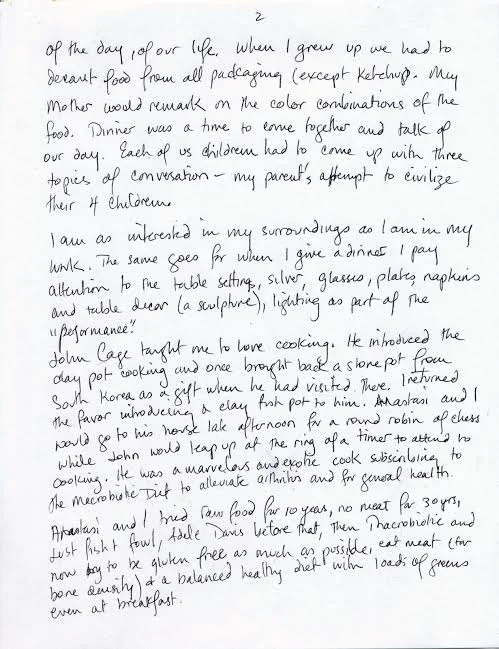 2
of the day, of our life. When I grew up we had to
decant food from all packaging (except Ketchup. My
Mother would remark on the color combinations of the
food. Dinner was a time to come together and talk of
our day. Each of us children had to come up with three
topics of conversation – my parent's attempt to civilize
their 4 children.
I am as interested in my surroundings as I am in my
work. The same goes for when I give a dinner I pay
attention to the table setting, silver, glasses, plates, napkins
and table decor (a sculpture), lighting as part of the
"performance".
John Cage taught me to love cooking. He introduced the
clay pot cooking and once brought back a stone pot from
South Korea as a gift when he had visited there. I returned
the favor introducing a clay fish pot to him. Anastasi and I
would go to his house late afternoon for a round robin of chess
while John would leap up at the ring of a timer to attend to
cooking. He was a marvelous and exotic cook subscribing to
the Macrobiotic Diet to alleviate arthritis and for general health.
Anastasi and I tried raw food for 10 years, no meat for 30 yrs,
Just fish + fowl, Adele Davis before that, then Macrobiotic and
now try to be gluten free as much as possible, eat meat (for
bone density) + a balanced healthy diet with loads of greens
even at breakfast.